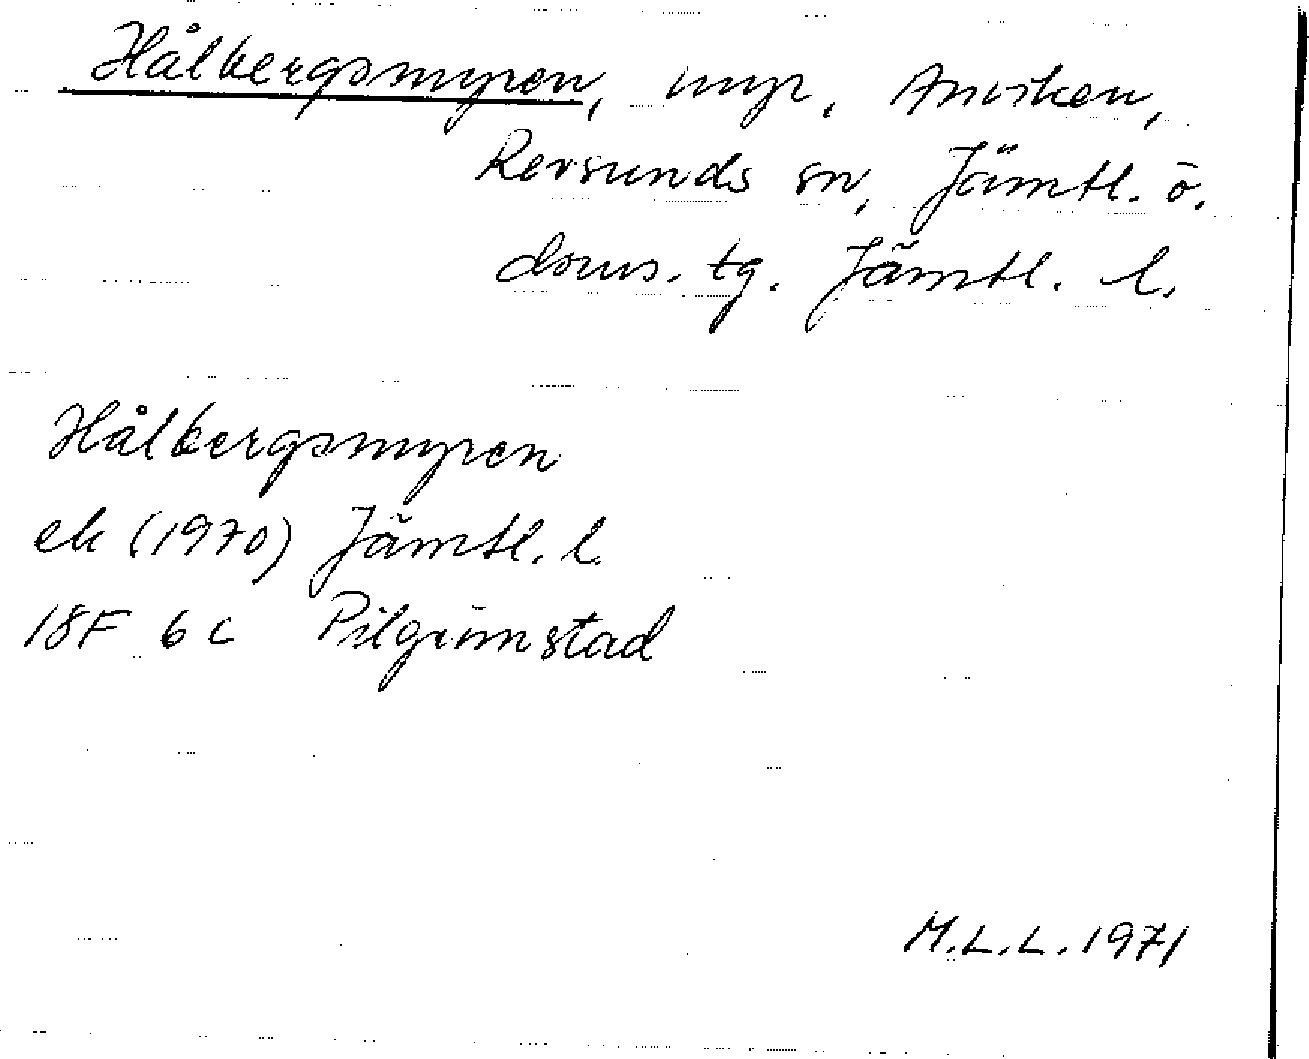 Hålbergsmyren, myr, Anviken,
Revsunds sn, Jämtl. ö.
doms. tg. Jämtl. l.
Hålbergsmyren
ek (1970) Jämtl. l.
18F 6c Pilgrimstad
M.L.L. 1971